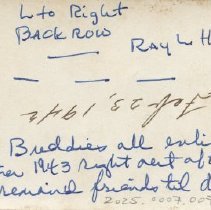 L to Right
BACK ROW
RAY L H
Feb 23, 1942
Buddies all enli
1943 right out of
remained friends til d
2025.0007.005